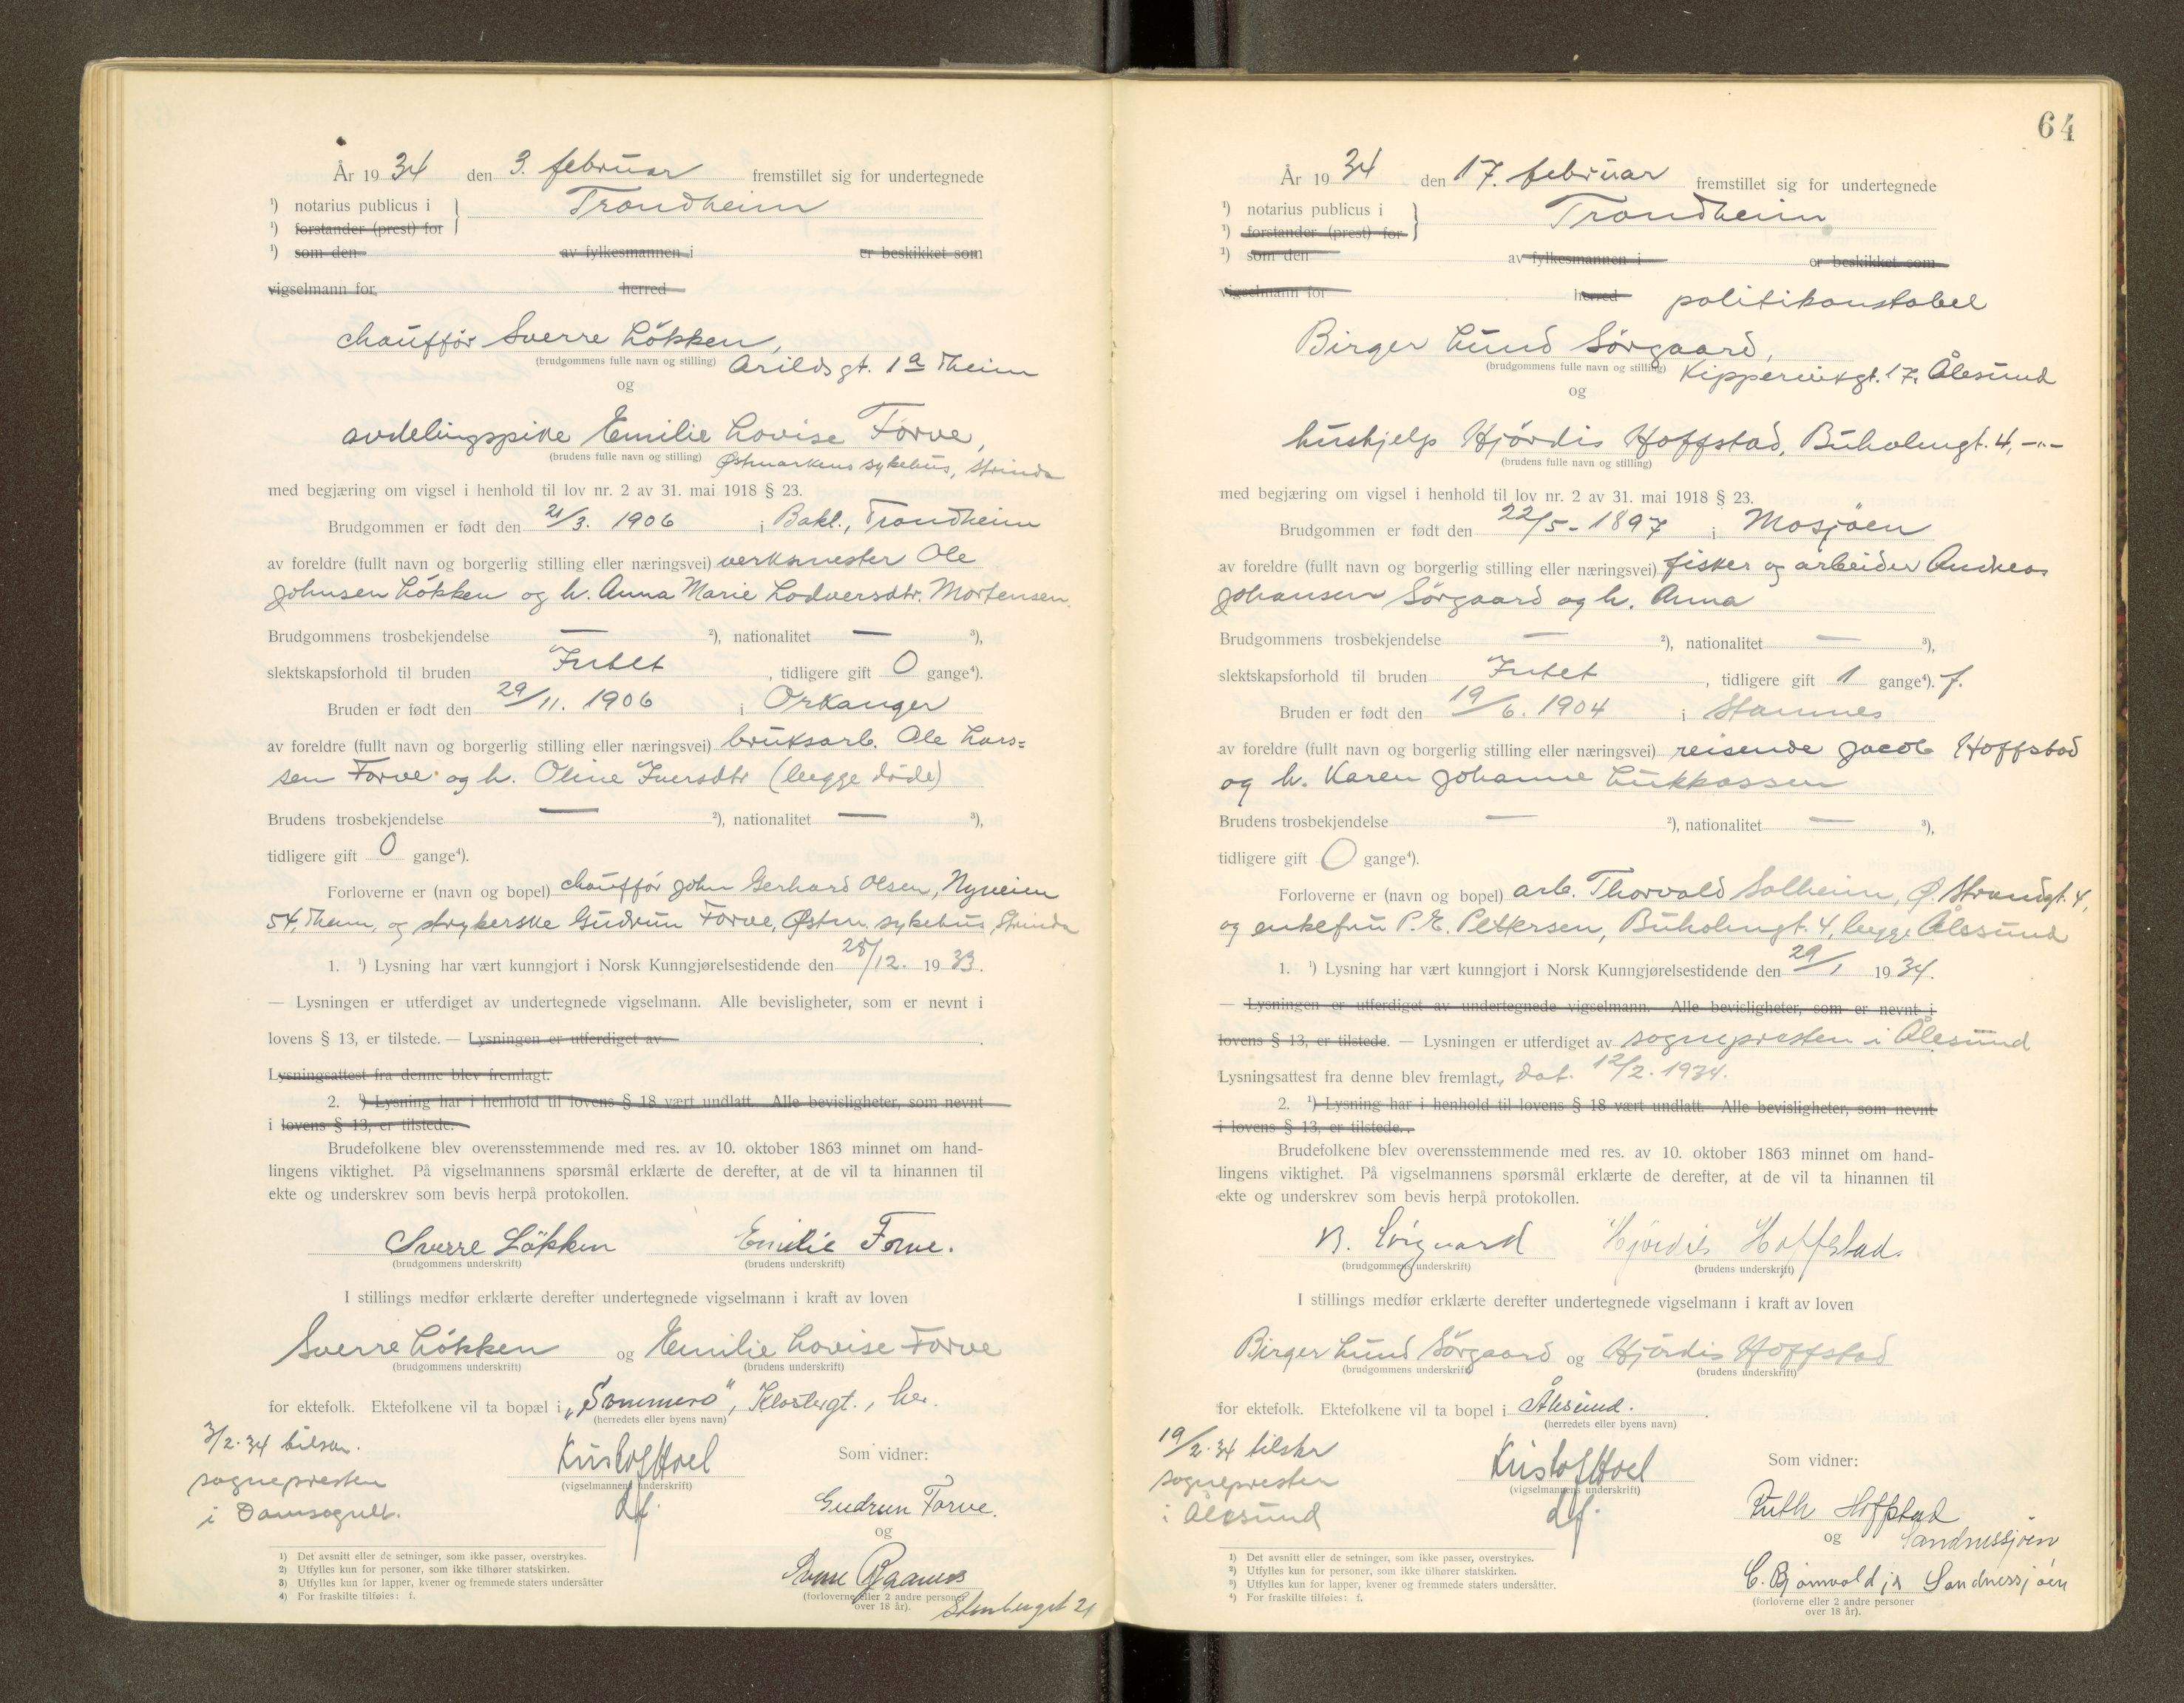 År 1934 den 3. februar fremstillet sig for undertegnede
¹) notarius publicus i } Trondheim
¹) forstander (prest) for
¹) som den av fylkesmannen i er beskikket som
vigselmann for herred
chauffør Sverre Løkken,
(brudgommens fulle navn og stilling) Arildsgt. 1a Theim
og
avdelingspike Emilie Lovise Forve,
(brudens fulle navn og stilling) Østmarkens sykehus, Strinda
med begjæring om vigsel i henhold til lov nr. 2 av 31. mai 1918 § 23.
Brudgommen er født den 21/3. 1906 i Bakl., Trondheim
av foreldre (fullt navn og borgerlig stilling eller næringsvei) verksmester Ole
Johnsen Løkken og h. Anna Marie Lodversdtr. Mortensen.
Brudgommens trosbekjendelse — ²), nationalitet — ³),
slektskapsforhold til bruden Intet, tidligere gift 0 gange⁴).
Bruden er født den 29/11. 1906 i Orkanger
av foreldre (fullt navn og borgerlig stilling eller næringsvei) bruksarb. Ole Lars=
sen Forve og h. Oline Iversdtr (begge døde)
Brudens trosbekjendelse — ²), nationalitet — ³),
tidligere gift 0 gange⁴).
Forloverne er (navn og bopel) chauffør John Gerhard Olsen, Nyveien
54, Theim, og strykerske Gudrun Forve, Østm. sykehus, Strinda
1. ¹) Lysning har vært kunngjort i Norsk Kunngjørelsestidende den 28/12. 1933.
— Lysningen er utferdiget av undertegnede vigselmann. Alle bevisligheter, som er nevnt i
lovens § 13, er tilstede. — Lysningen er utferdiget av
Lysningsattest fra denne blev fremlagt.
2. ¹) Lysning har i henhold til lovens § 18 vært undlatt. Alle bevisligheter, som nevnt
i lovens § 13, er tilstede.
Brudefolkene blev overensstemmende med res. av 10. oktober 1863 minnet om hand-
lingens viktighet. På vigselmannens spørsmål erklærte de derefter, at de vil ta hinannen til
ekte og underskrev som bevis herpå protokollen.
Sverre Løkken Emilie Forve.
(brudgommens underskrift) (brudens underskrift)
I stillings medfør erklærte derefter undertegnede vigselmann i kraft av loven
Sverre Løkken og Emilie Lovise Forve
(brudgommens underskrift) (brudens underskrift)
for ektefolk. Ektefolkene vil ta bopæl i "Sommero", Klostergt., her.
(herredets eller byens navn)
3/2.34 tilskr.
sognepresten
i Domsognet.
Kristof Hoel
(vigselmannens underskrift)
df.
Som vidner:
Gudrun Forve.
og
(forloverne eller 2 andre personer
over 18 år).
1) Det avsnitt eller de setninger, som ikke passer, overstrykes.
2) Utfylles kun for personer, som ikke tilhører statskirken.
3) Utfylles kun for lapper, kvener og fremmede staters undersåtter
4) For fraskilte tilføies: f.
64
År 1934 den 17. februar fremstillet sig for undertegnede
¹) notarius publicus i } Trondheim
¹) forstander (prest) for
¹) som den av fylkesmannen i er beskikket som
vigselmann for herred politikonstabel
Birger Lund Sørgaard,
(brudgommens fulle navn og stilling) Kippervikgt. 17, Ålesund
og
hushjelp Hjørdis Hoffstad, Buholmgt. 4, -"-
(brudens fulle navn og stilling)
med begjæring om vigsel i henhold til lov nr. 2 av 31. mai 1918 § 23.
Brudgommen er født den 22/5- 1897 i Mosjøen
av foreldre (fullt navn og borgerlig stilling eller næringsvei) fisker og arbeider Andreas
Johansen Sørgaard og h. Anna
Brudgommens trosbekjendelse — ²), nationalitet — ³),
slektskapsforhold til bruden Intet, tidligere gift 1 gange⁴). f.
Bruden er født den 19/6. 1904 i Stamnes
av foreldre (fullt navn og borgerlig stilling eller næringsvei) reisende Jacob Hoffstad
og h. Karen Johanne Lukkassen
Brudens trosbekjendelse — ²), nationalitet — ³),
tidligere gift 0 gange⁴).
Forloverne er (navn og bopel) arb. Thorvald Solheim, Ø. Strandgt. 4,
og enkefru P. E. Pettersen, Buholmgt. 4, begge Ålesund
1. ¹) Lysning har vært kunngjort i Norsk Kunngjørelsestidende den 29/1 1934.
— Lysningen er utferdiget av undertegnede vigselmann. Alle bevisligheter, som er nevnt i
lovens § 13, er tilstede. — Lysningen er utferdiget av sognepresten i Ålesund
Lysningsattest fra denne blev fremlagt., dat. 12/2. 1934.
2. ¹) Lysning har i henhold til lovens § 18 vært undlatt. Alle bevisligheter, som nevnt
i lovens § 13, er tilstede.
Brudefolkene blev overensstemmende med res. av 10. oktober 1863 minnet om hand-
lingens viktighet. På vigselmannens spørsmål erklærte de derefter, at de vil ta hinannen til
ekte og underskrev som bevis herpå protokollen.
B. Sørgaard Hjørdis Hoffstad.
(brudgommens underskrift) (brudens underskrift)
I stillings medfør erklærte derefter undertegnede vigselmann i kraft av loven
Birger Lund Sørgaard og Hjørdis Hoffstad
(brudgommens underskrift) (brudens underskrift)
for ektefolk. Ektefolkene vil ta bopel i Ålesund.
(herredets eller byens navn)
19/2.34 tilskr
sognepresten
i Ålesund
Kristof Hoel
(vigselmannens underskrift)
df.
Som vidner:
Ruth Hoffstad
og Sandnessjøen
C. Bjørnvold jr Sandnessjøen
(forloverne eller 2 andre personer
over 18 år).
1) Det avsnitt eller de setninger, som ikke passer, overstrykes.
2) Utfylles kun for personer, som ikke tilhører statskirken.
3) Utfylles kun for lapper, kvener og fremmede staters undersåtter.
4) For fraskilte tilføies: f.